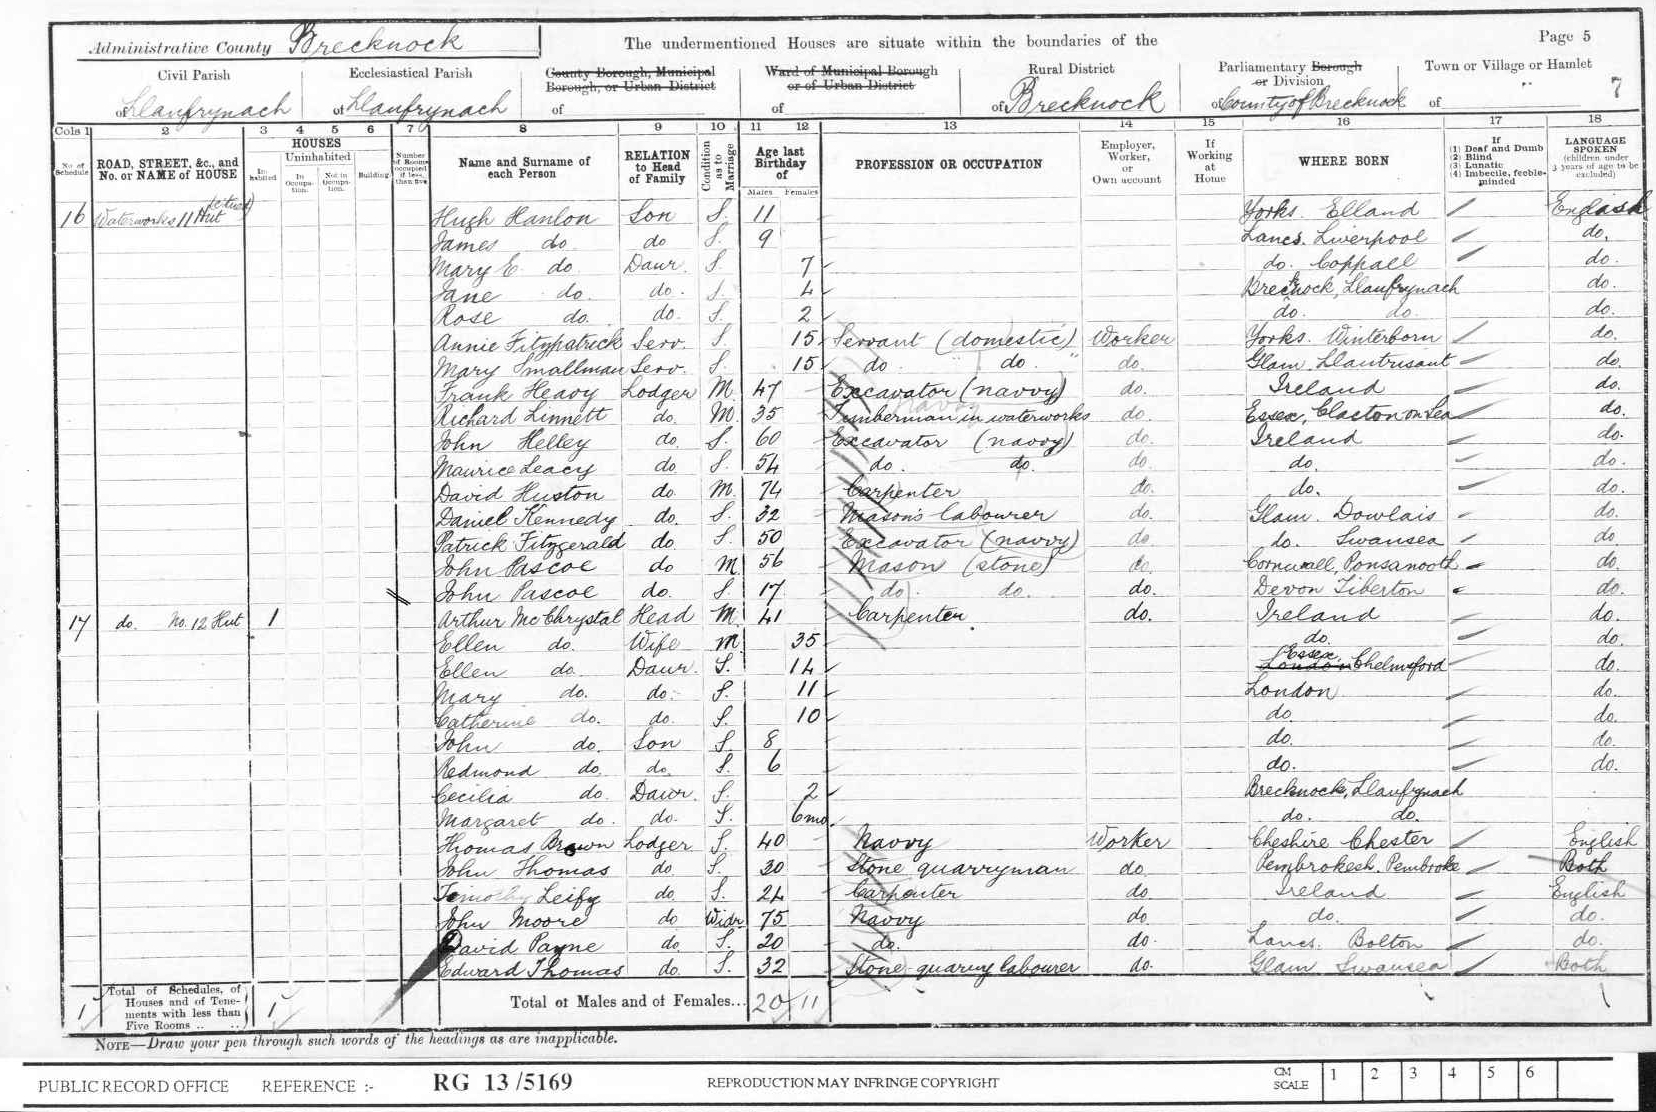 Administrative County Brecknock
The undermentioned Houses are situate within the boundaries of the
Page 5
Civil Parish
of Llanfrynach
Ecclesiastical Parish
of Llanfrynach
County Borough, Municipal Borough, or Urban District
of
Ward of Municipal Borough or of Urban District
of
Rural District
of Brecknock
Parliamentary Borough or Division
of County of Brecknock
Town or Village or Hamlet
of
7
Cols 1 2 3 4 5 6 7 8 9 10 11 12 13 14 15 16 17 18
No. of Schedule
ROAD, STREET, &c., and No. or NAME of HOUSE
HOUSES
Inhabited
Uninhabited
In Occupation.
Not in Occupation.
Building
Number of Rooms occupied if less than five
Name and Surname of each Person
RELATION to Head of Family
Condition as to Marriage
Age last Birthday of
Males Females
PROFESSION OR OCCUPATION
Employer, Worker, or Own account
If Working at Home
WHERE BORN
If (1) Deaf and Dumb (2) Blind (3) Lunatic (4) Imbecile, feeble-minded
LANGUAGE SPOKEN (children under 3 years of age to be excluded)
16 Waterworks 11 Hut (ctued) Hugh Hanlon Son S. 11 Yorks. Elland English
James do do S. 9 Lancs. Liverpool do.
Mary E. do. Daur. S. 7 do. Coppall do.
Jane do. do. S. 4 Brecknock, Llanfrynach do.
Rose do. do. S. 2 do. do. do.
Annie Fitzpatrick Serv. S. 15 Servant (domestic) Worker Yorks. Winterborn do.
Mary Smallman Serv. S. 15 do " do " do. Glam. Llantrisant do.
Frank Heavy Lodger M. 47 Excavator (navvy) do. Ireland do.
Richard Linnett do. M 35 Timberman in waterworks do. Essex, Clacton on Sea do.
John Helley do. S. 60 Excavator (navvy) do. Ireland do.
Maurice Leacy do. S. 54 do. do. do. do. do.
David Huston do. M. 74 Carpenter do. do. do.
Daniel Kennedy do. S. 32 Mason's labourer do. Glam. Dowlais do.
Patrick Fitzgerald do. S. 50 Excavator (navvy) do do. Swansea do
John Pascoe do M. 56 Mason (stone) do. Cornwall, Ponsanooth do.
John Pascoe do. S. 17 do. do. do. Devon Tiberton do.
17 do. No. 12 Hut 1 Arthur McChrystal Head M. 41 Carpenter. do. Ireland do.
Ellen do. Wife M. 35 do. do.
Ellen do. Daur. S. 14 London Essex, Chelmsford do.
Mary do. do. S. 11 London do.
Catherine do. do. S. 10 do. do.
John do. Son S. 8 do. do.
Redmond do. do. S. 6 do. do.
Cecilia do. Daur. S. 2 Brecknock, Llanfrynach
Margaret do. do. S. 6mo. do. do.
Thomas Brown Lodger S. 40 Navvy Worker Cheshire Chester English
John Thomas do. S. 30 Stone quarryman do. Pembrokesh. Pembroke Both
Timothy do. S. 24 Carpenter do. Ireland English
John Moore do Widr 75 Navvy do do. do.
David Payne do S. 20 do. do. Lancs. Bolton do.
Edward Thomas do. S. 32 Stone quarry labourer do. Glam Swansea Both
1 Total of Schedules, of Houses and of Tenements with less than Five Rooms .. .. 1 Total of Males and of Females... 20 11
NOTE—Draw your pen through such words of the headings as are inapplicable.
PUBLIC RECORD OFFICE REFERENCE :- RG 13/5169 REPRODUCTION MAY INFRINGE COPYRIGHT CM SCALE 1 2 3 4 5 6